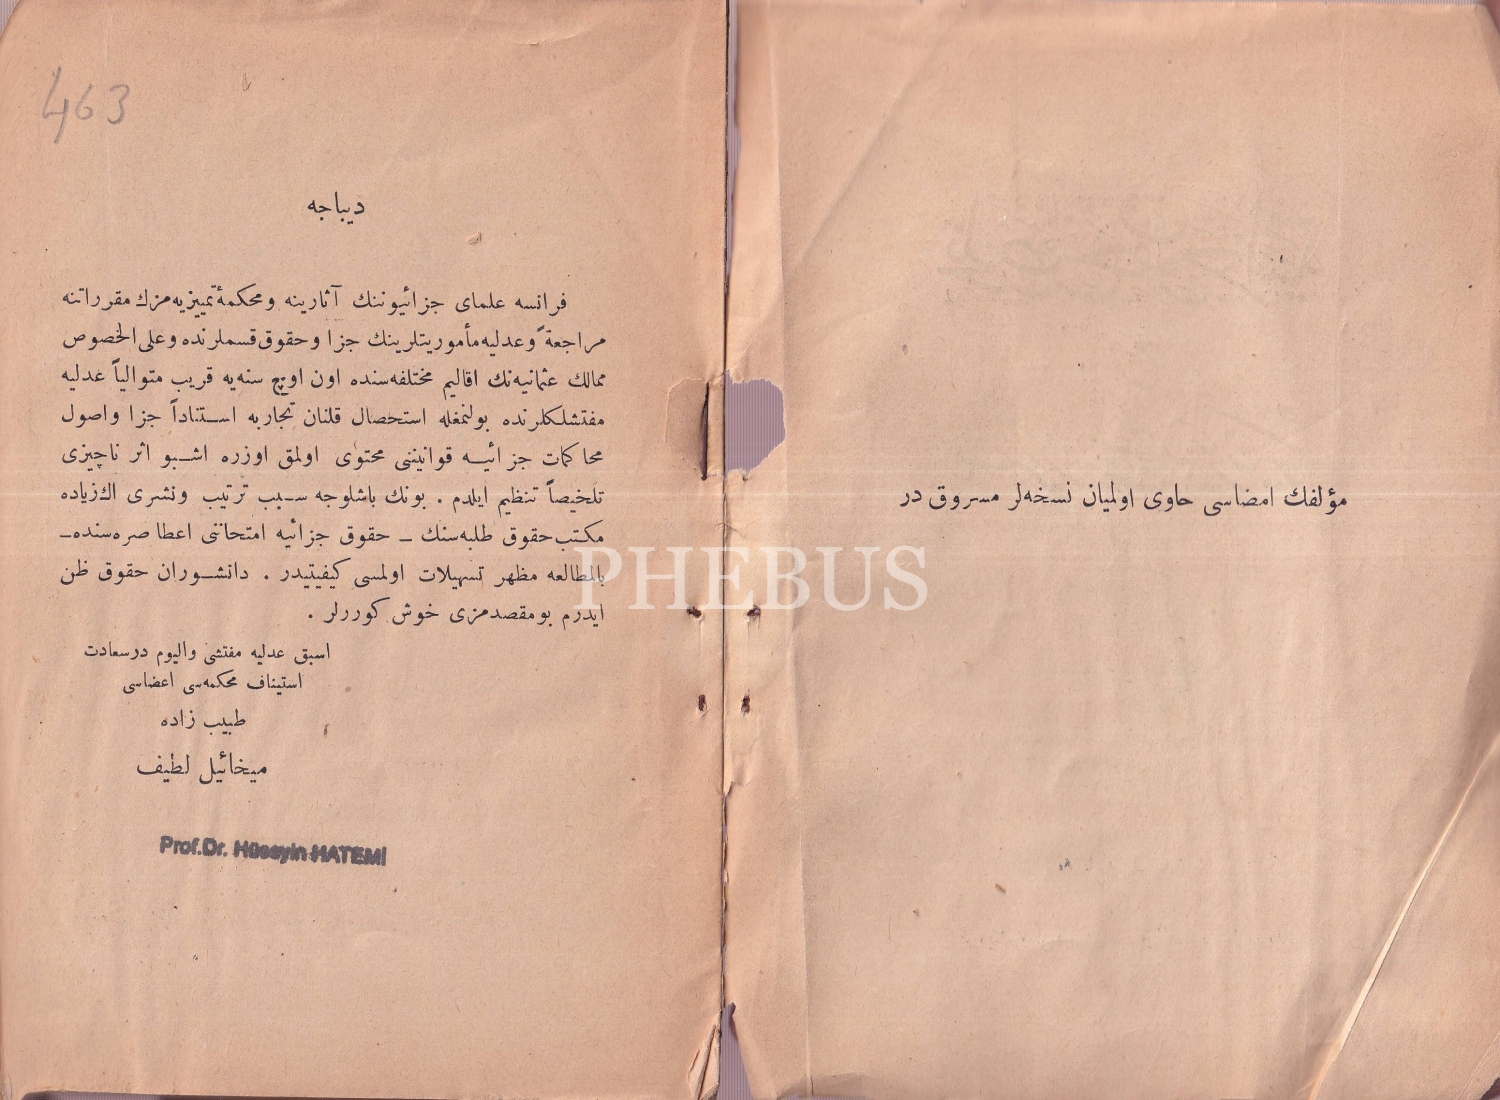 مؤلفك امضاسی حاوی اولمیان نسخه‌لر مسروق در
463
دیباجه
فرانسه علمای جزائیوننك آثارینه ومحكمهٔ تمییزیه‌مزك مقرراتنه
مراجعةً وعدلیه‌مأموریتلرینك جزا وحقوق‌قسملرنده وعلی‌الخصوص
ممالك عثمانیه‌نك اقالیم مختلفه‌سنده اون اوچ سنه‌یه قریب متوالیاً عدلیه
مفتشلكلرنده بولنمغله استحصال قلنان تجاربه استناداً جزا واصول
محاكمات جزائیه قوانیننی محتوی اولمق اوزره اشبو اثر ناچیزی
تلخیصاً تنظیم ایلدم . بونك باشلوجه سبب ترتیب ونشری اك‌زیاده
مكتب‌حقوق طلبه‌سنك ـ حقوق جزائیه امتحاننی اعطا صره‌سنده‌ـ
بالمطالعه مظهر تسهیلات اولمسی كیفیتیدر . دانشوران حقوق ظن
ایدرم بومقصدمزی خوش كوررلر .
اسبق عدلیه مفتشی والیوم درسعادت
استیناف محكمه‌سی اعضاسی
طبیب زاده
میخائیل لطیف
Prof.Dr. Hüseyin HATEMİ
PHEBUS